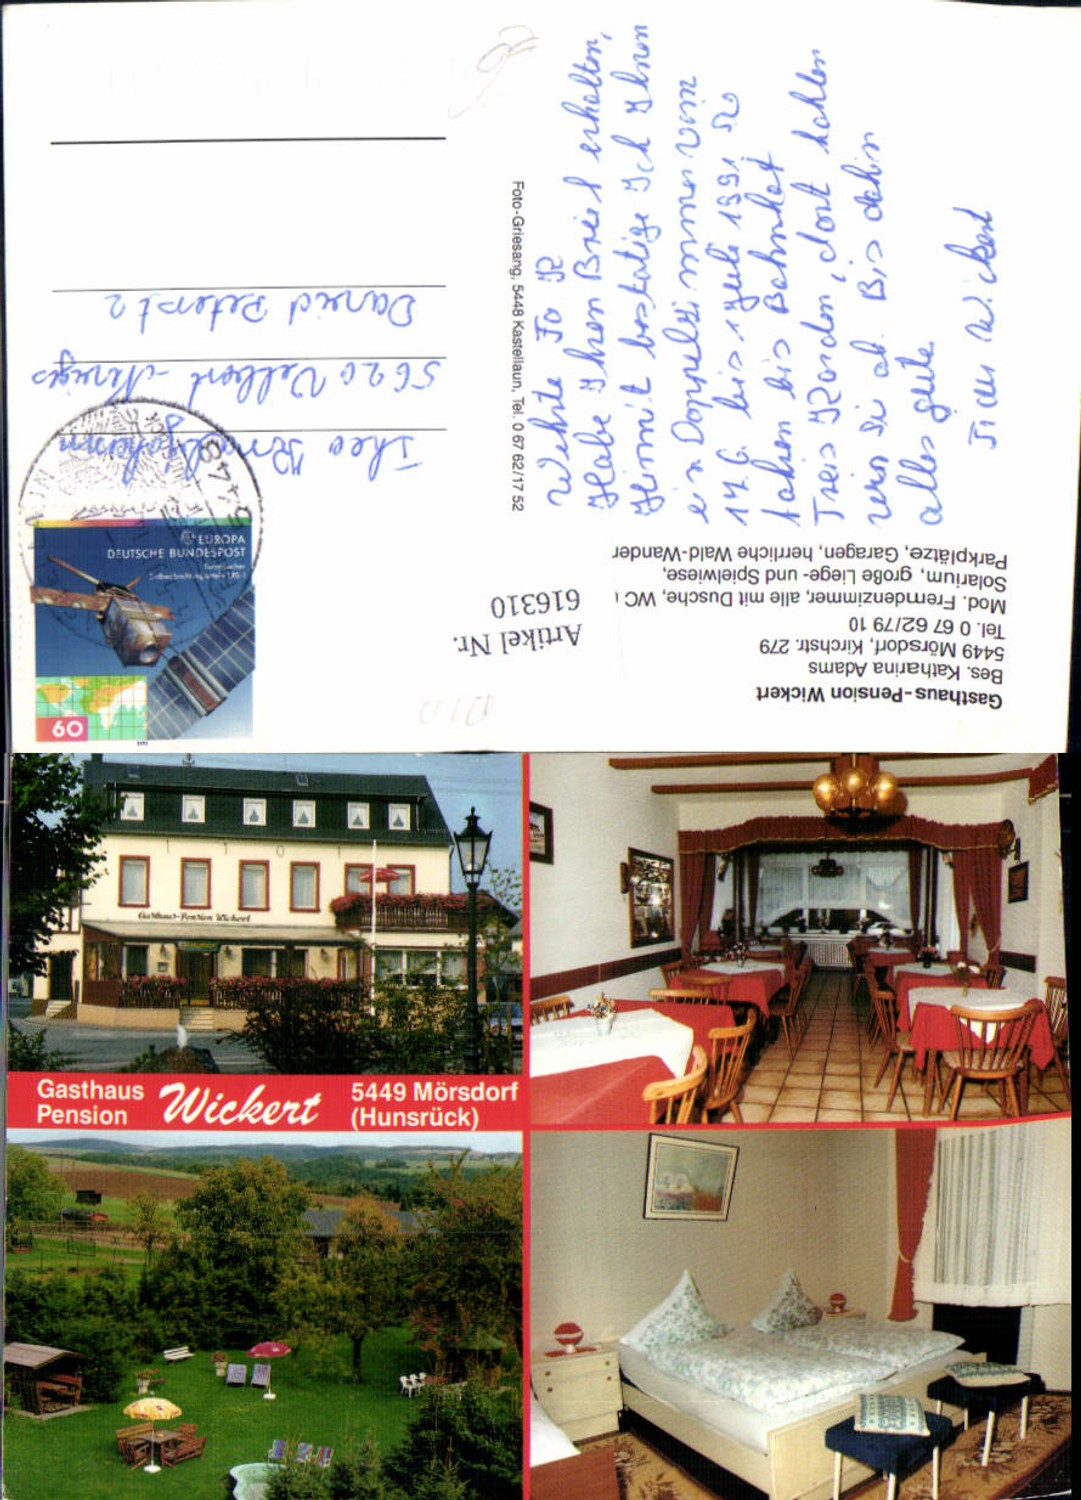 Werte Fa K
Habe Ihren Brief erhalten,
Himit bestätige Ich Ihnen
ein Doppeltzimmer vom
14.6. bis 1 Juli 1991 Sie
fahren bis Bahnhof
Treis Karden, dort hohlen
wirn Si ab. Bis dahin
alles gute
Wickert
Foto-Griesang, 5448 Kastellaun, Tel. 0 67 62/17 52
Theo
5620 Velbert -Neviges
Daniel Peterst 2
EUROPA
DEUTSCHE BUNDESPOST
60
Artikel Nr.
616310
Gasthaus-Pension Wickert
Bes. Katharina Adams
5449 Mörsdorf, Kirchstr. 279
Tel. 0 67 62/79 10
Mod. Fremdenzimmer, alle mit Dusche, WC
Solarium, große Liege- und Spielwiese,
Parkplätze, Garagen, herrliche Wald-Wander
Gasthaus-Pension Wickert
Gasthaus
Pension
Wickert
5449 Mörsdorf
(Hunsrück)